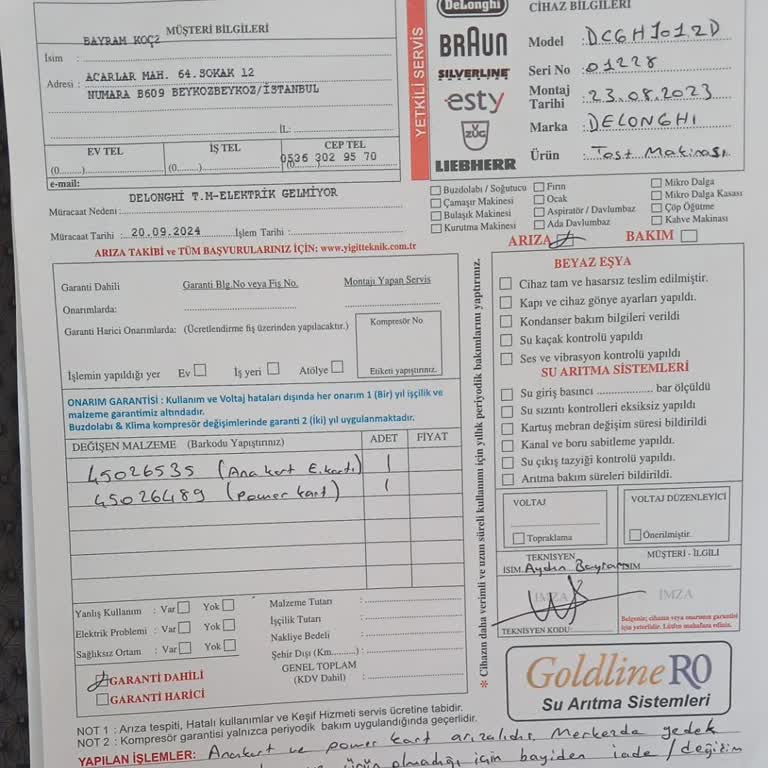 MÜŞTERİ BİLGİLERİ
İsim : BAYRAM KOÇ2
Adresi : ACARLAR MAH. 64.SOKAK 12
NUMARA B609 BEYKOZBEYKOZ/İSTANBUL
İL:
EV TEL
İŞ TEL
CEP TEL
(0......)
(0......)
(0......) 0536 302 95 70
e-mail:
Müracaat Nedeni : DELONGHI T.M-ELEKTRİK GELMİYOR
Müracaat Tarihi : 20.09.2024 İşlem Tarihi :
YETKİLİ SERVİS
DeLonghi
BRAUN
SILVERLINE
esty
V ZUG
LIEBHERR
CİHAZ BİLGİLERİ
Model : DCGH1012D
Seri No : 01228
Montaj Tarihi : 23.08.2023
Marka : DELONGHI
Ürün : Tost Makinası
Buzdolabı / Soğutucu
Çamaşır Makinesi
Bulaşık Makinesi
Kurutma Makinesi
Fırın
Ocak
Aspiratör / Davlumbaz
Ada Davlumbaz
Mikro Dalga
Mikro Dalga Kasası
Çöp Öğütme
Kahve Makinası
ARIZA TAKİBİ ve TÜM BAŞVURULARINIZ İÇİN: www.yigitteknik.com.tr
ARIZA
BAKIM
Garanti Dahili
Garanti Blg.No veya Fiş No.
Montajı Yapan Servis
Onarımlarda:
Garanti Harici Onarımlarda: (Ücretlendirme fiş üzerinden yapılacaktır.)
Kompresör No
Etiketi yapıştırınız.
İşlemin yapıldığı yer Ev İş yeri Atölye
ONARIM GARANTİSİ : Kullanım ve Voltaj hataları dışında her onarım 1 (Bir) yıl işçilik ve
malzeme garantimiz altındadır.
Buzdolabı & Klima kompresör değişimlerinde garanti 2 (İki) yıl uygulanmaktadır.
DEĞİŞEN MALZEME (Barkodu Yapıştırınız)
ADET
FİYAT
45026535 (Anakart E.kartı) 1
45026489 (Power kart) 1
Yanlış Kullanım : Var Yok
Elektrik Problemi : Var Yok
Sağlıksız Ortam : Var Yok
Malzeme Tutarı :
İşçilik Tutarı :
Nakliye Bedeli :
Şehir Dışı (Km..........) :
GENEL TOPLAM :
(KDV Dahil)
GARANTİ DAHİLİ
GARANTİ HARİCİ
* Cihazın daha verimli ve uzun süreli kullanımı için yıllık periyodik bakımlarını yaptırınız.
BEYAZ EŞYA
Cihaz tam ve hasarsız teslim edilmiştir.
Kapı ve cihaz gönye ayarları yapıldı.
Kondanser bakım bilgileri verildi
Su kaçak kontrolü yapıldı
Ses ve vibrasyon kontrolü yapıldı
SU ARITMA SİSTEMLERİ
Su giriş basıncı .................. bar ölçüldü
Su sızıntı kontrolleri eksiksiz yapıldı
Kartuş mebran değişim süresi bildirildi
Kanal ve boru sabitleme yapıldı.
Su çıkış tazyiği kontrolü yapıldı.
Arıtma bakım süreleri bildirildi.
VOLTAJ
Topraklama
VOLTAJ DÜZENLEYİCİ
Önerilmiştir.
TEKNİSYEN
MÜŞTERİ - İLGİLİ
İSİM. Aydın Bayram
İSİM
İMZA
İMZA
TEKNİSYEN KODU:
Belgeniz; cihazın veya onarımın garantisi
için yeterlidir. Lütfen muhafaza ediniz.
Goldline RO
Su Arıtma Sistemleri
NOT 1 : Arıza tespiti, Hatalı kullanımlar ve Keşif Hizmeti servis ücretine tabidir.
NOT 2 : Kompresör garantisi yalnızca periyodik bakım uygulandığında geçerlidir.
YAPILAN İŞLEMLER: Anakart ve power kart arızalıdır. Merkezde yedek
ürün olmadığı için bayiden iade / değişim